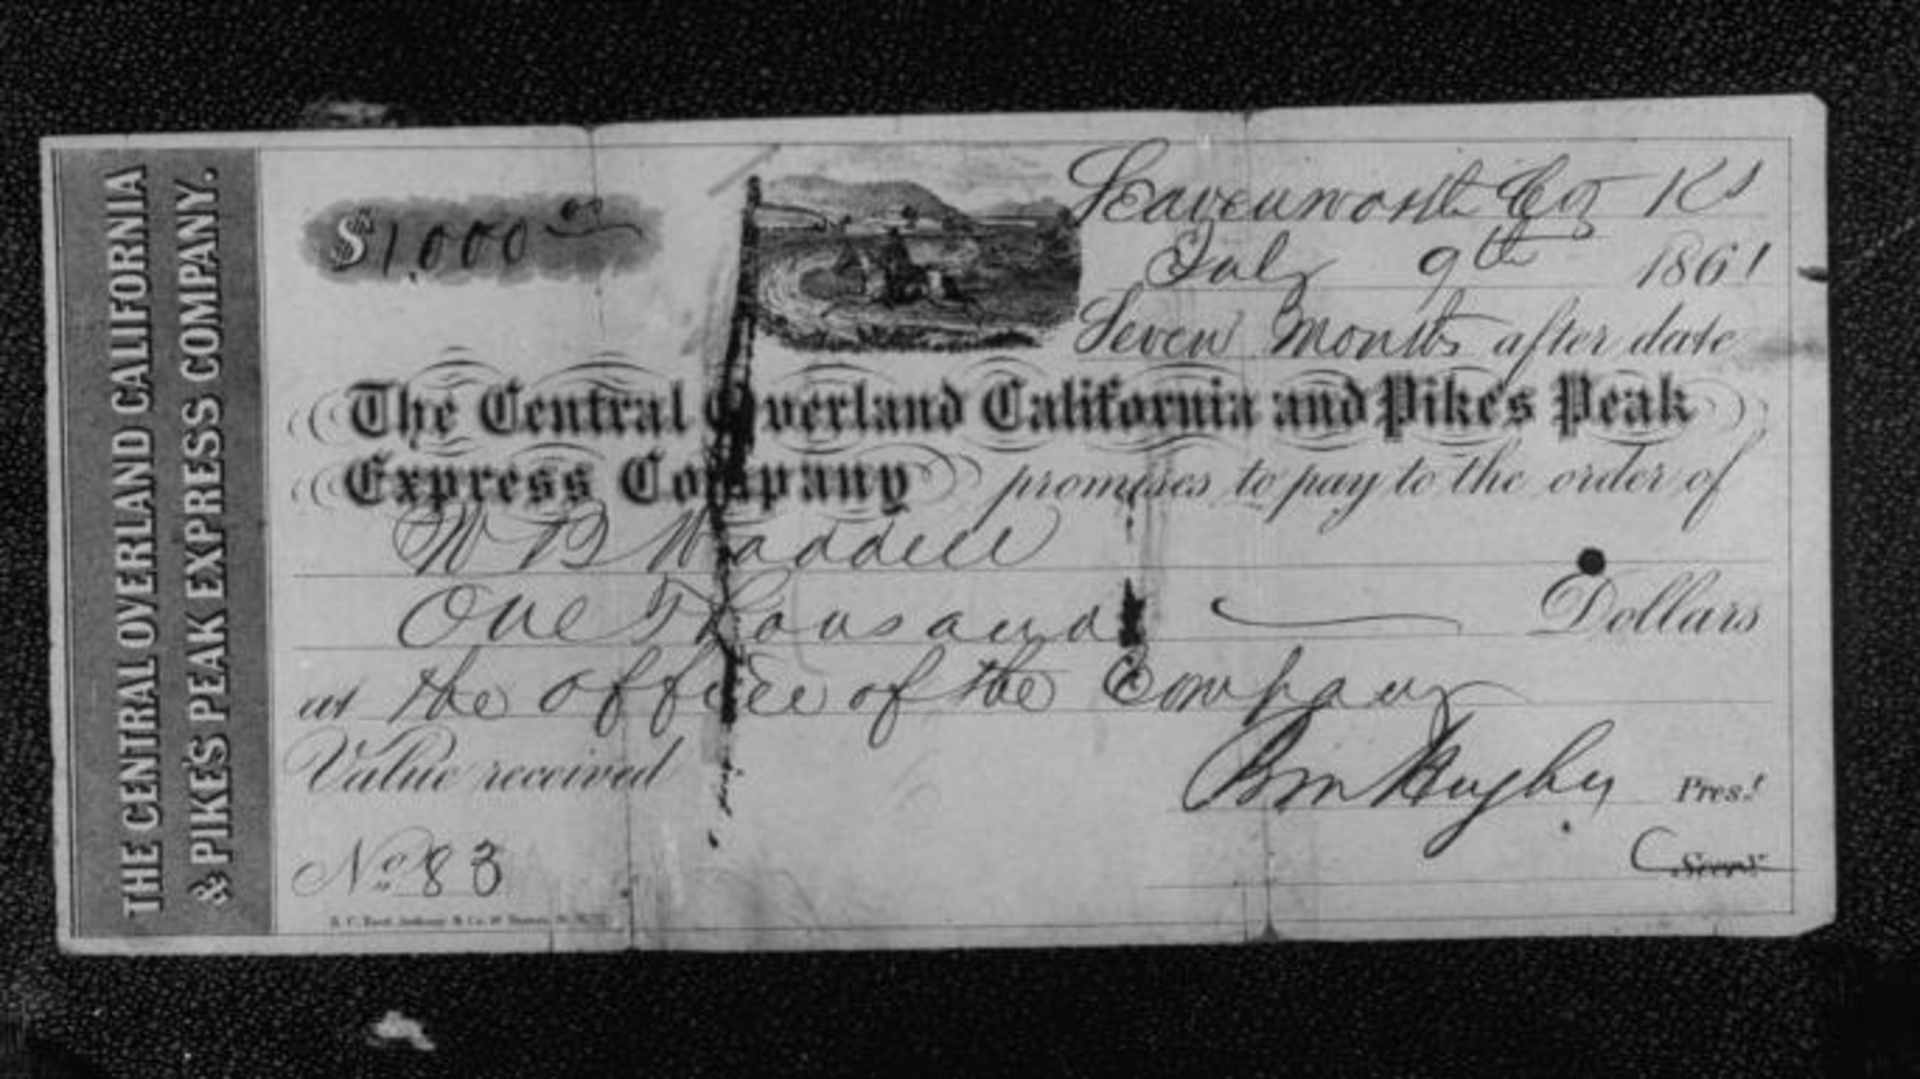 THE CENTRAL OVERLAND CALIFORNIA
& PIKE'S PEAK EXPRESS COMPANY.
$1,000 00
Leavenworth City Ks
July 9th 1861
Seven Months after date
The Central Overland California and Pike's Peak
Express Company promises to pay to the order of
W B Waddell
One Thousand Dollars
at the office of the Company
Value received
Bm Hughes Pres!
No. 83